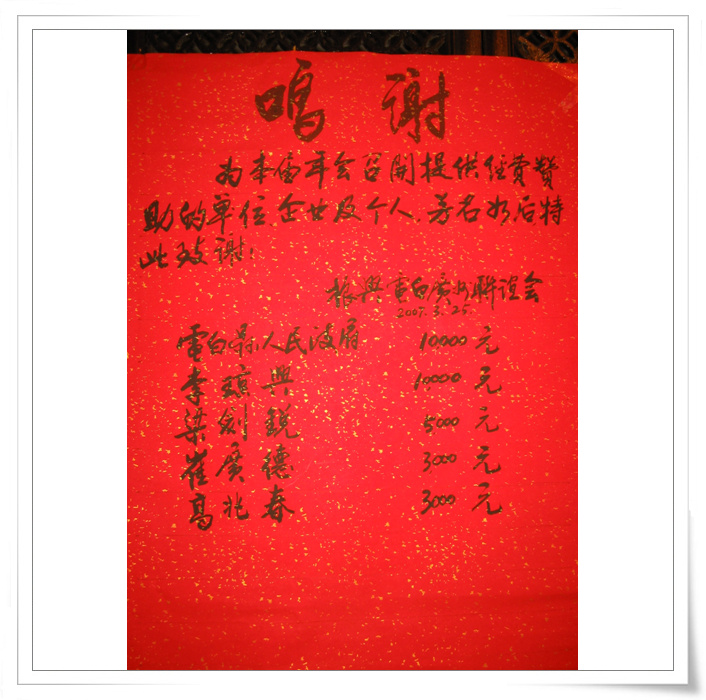 鸣 谢
为本届年会召開提供经费赞
助的单位、企业及个人、芳名如后特
此致谢!
振興電白廣州聯誼会
2007.3.25.
電白县人民政府 10000元
李 琼 興 10000 元
梁 劍 銳 5000 元
崔 廣 德 3000 元
高 兆 春 3000 元